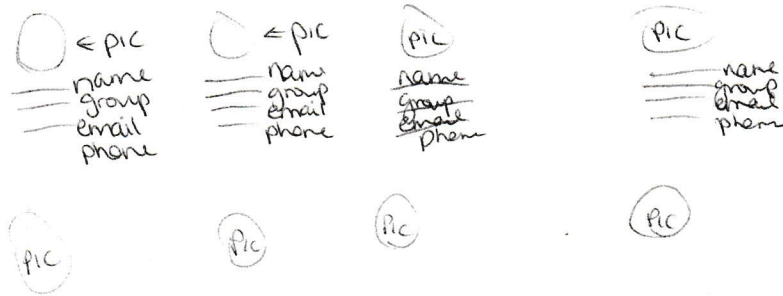 ← PIC
name
group
email
phone
← PIC
name
group
email
phone
PIC
name
group
email
phone
PIC
name
group
email
phone
PIC
PIC
PIC
PIC